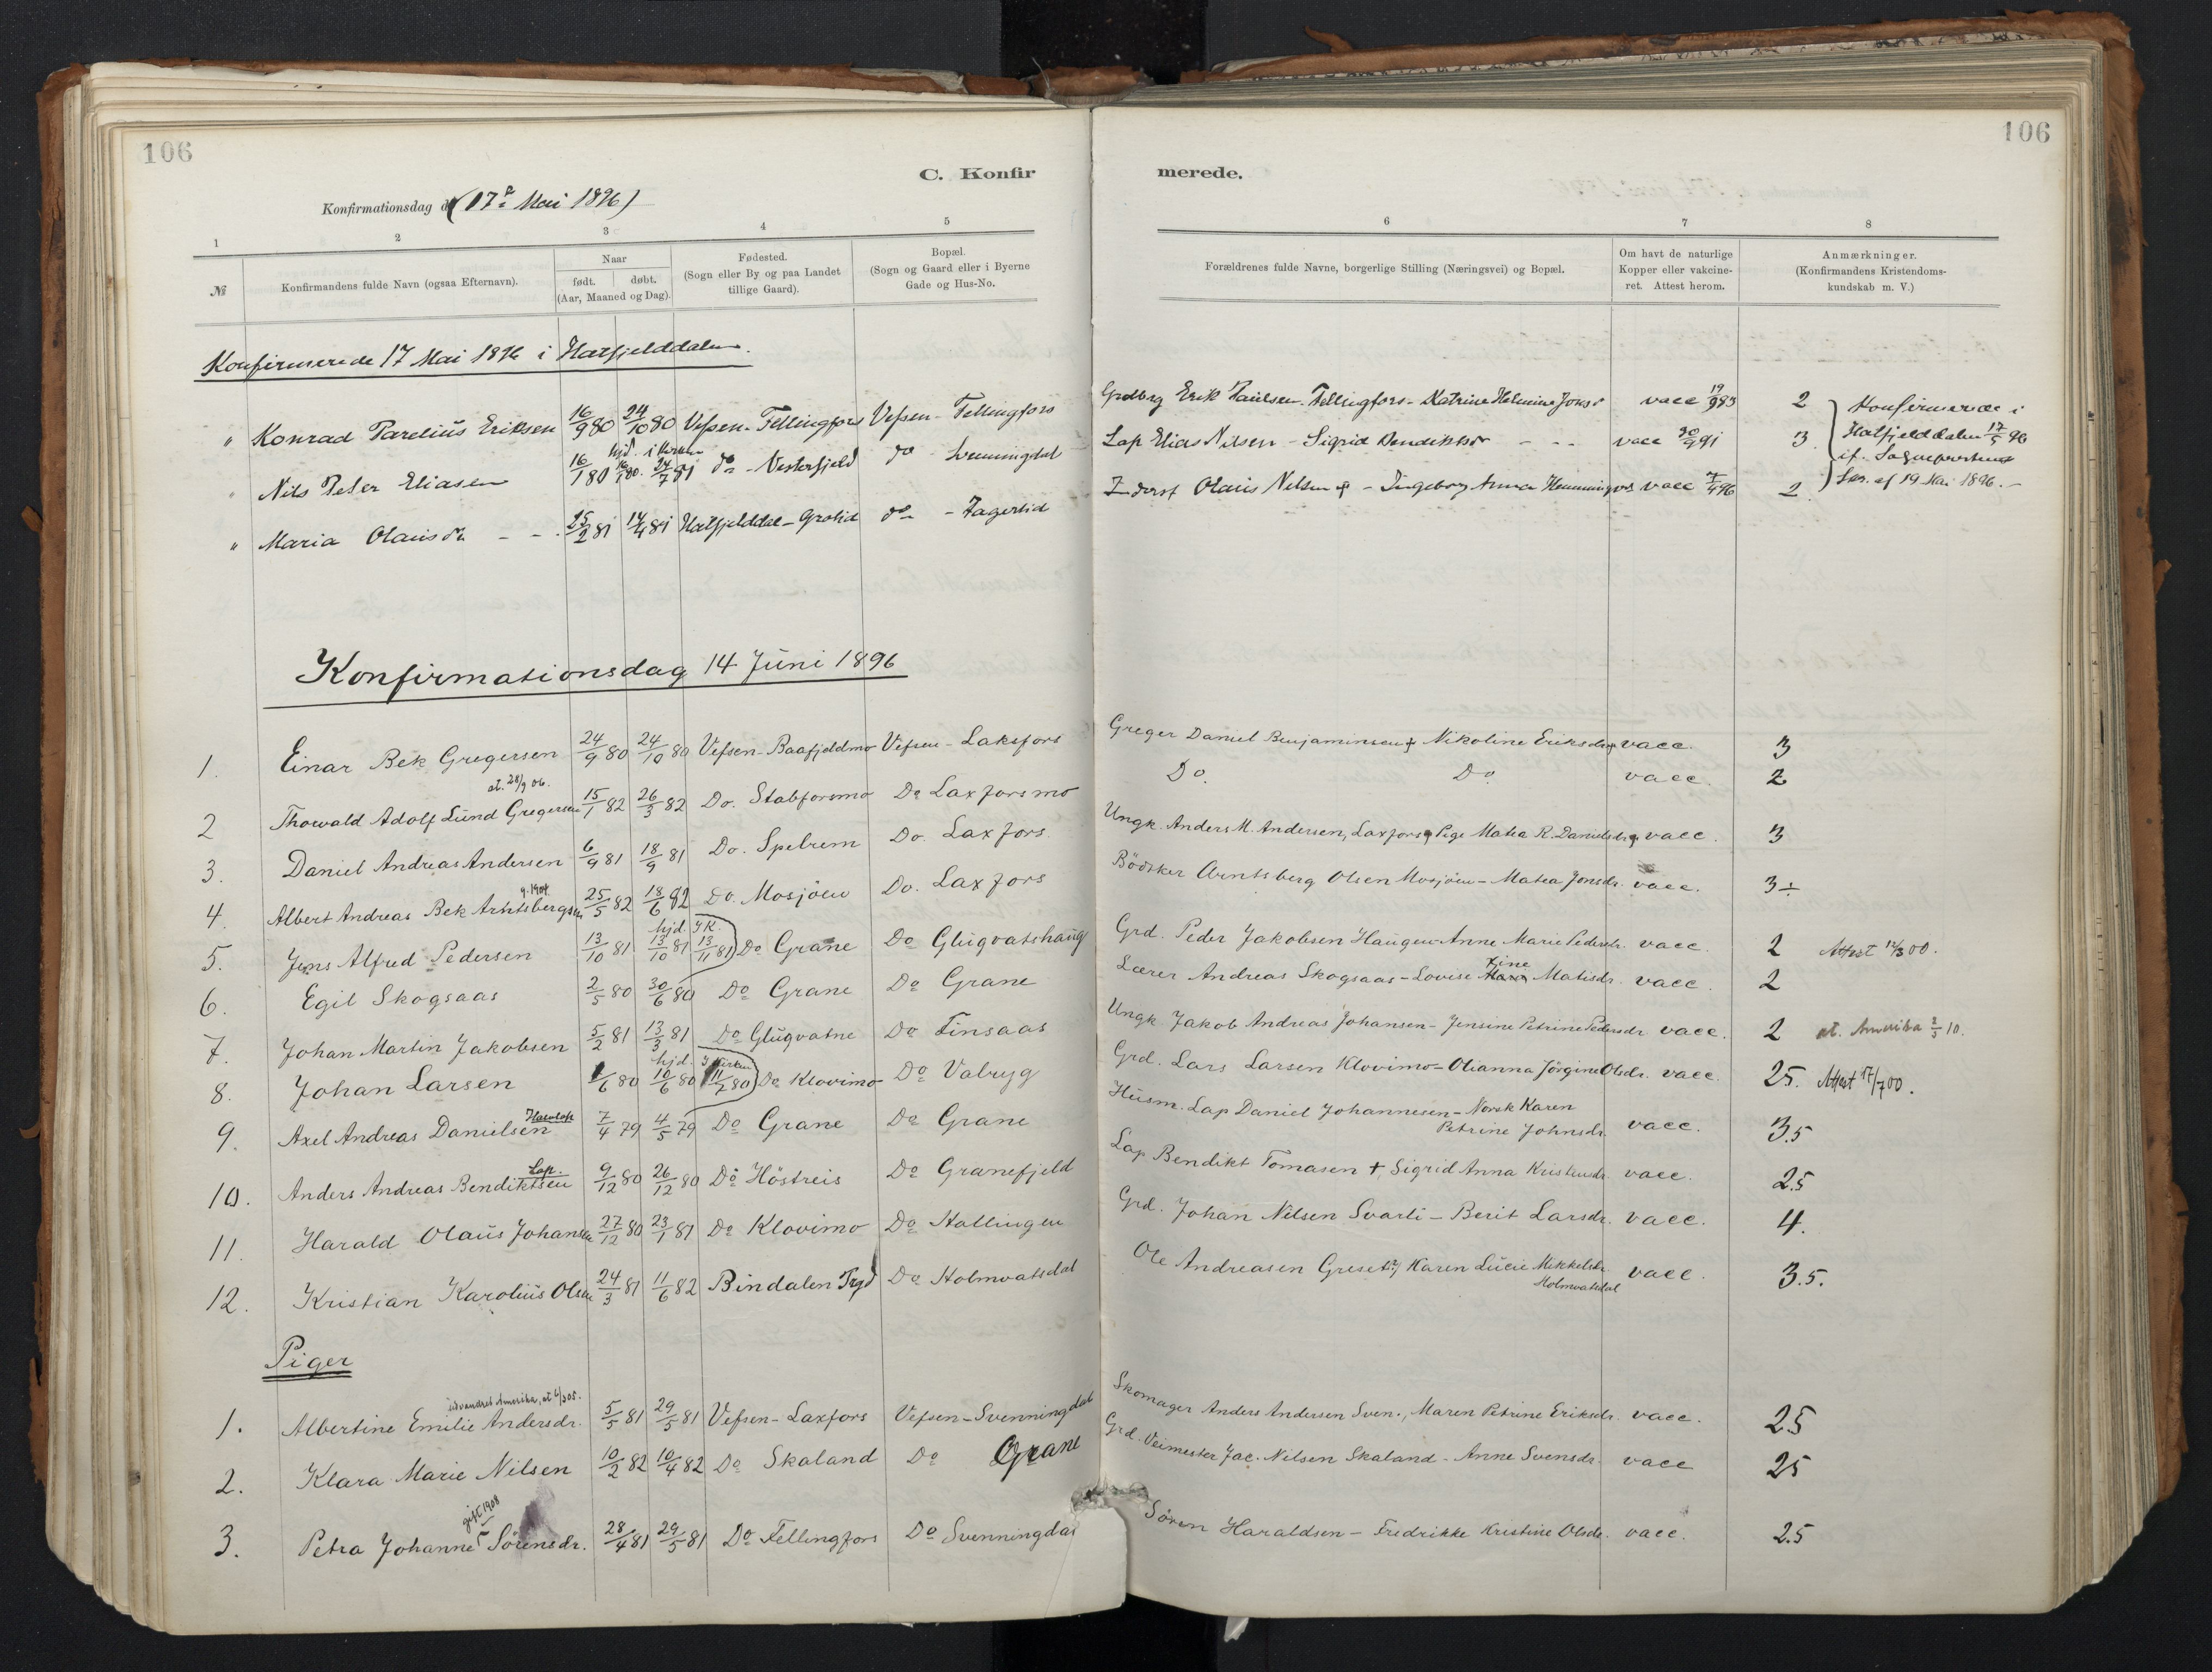 106
106
C. Konfir
merede.
Konfirmationsdag d (17de Mai 1896)
1 2 3 4 5 6 7 8
№ Konfirmandens fulde Navn (ogsaa Efternavn). Naar født. døbt. (Aar, Maaned og Dag). Fødested. (Sogn eller By og paa Landet tillige Gaard). Bopæl. (Sogn og Gaard eller i Byerne Gade og Hus-No. Forældrenes fulde Navne, borgerlige Stilling (Næringsvei) og Bopæl. Om havt de naturlige Kopper eller vakcineret. Attest herom. Anmærkninger. (Konfirmandens Kristendomskundskab m. V.)
Konfirmerede 17 Mai 1896 i Hatfjelddalen.
" Konrad Parelius Eriksen 16/9 80 24/10 80 Vefsen - Fellingfors Vefsen - Fellingfors Grdbrg Erik Paulsen Fellingfors - Katrine Helmine Jonsd vacc 19/9 83 2 Konfirmerede i
" Nils Peter Eliasen 16/1 80 hjd. i Kirken 24/7 81 do - Vesterfjeld do - Svenningdal Lap Elias Nilsen - Sigrid Bendiktsdr - - - vacc 30/9 91 3 Hatfjelddalen 17/5 96
" Maria Olausdr - - 25/2 81 17/4 81 Hatfjelddal - Grotid do - Fagerlid Olaus Nilsen † - Ingeborg Anna Hemmingsd vacc 7/4 96 2. if. Sogneprestens Skr. af 19 Mai 1896. -
Konfirmationsdag 14 Juni 1896
1. Einar Bek Gregersen 24/9 80 24/10 80 Vefsen - Baafjeldmo Vefsen - Laksfors Greger Daniel Benjaminsen † Nikoline Eriksdr † vacc. 3
at. 28/9 06.
2 Thorvald Adolf Lund Gregersen 15/1 82 26/3 82 Do. Stabforsmo Do Laxforsmo Do. Do vacc. 2
3. Daniel Andreas Andersen 6/9 81 18/9 81 Do. Spelrem Do. Laxfors. Ungk. Anders M. Andersen, Laxfors, Pige Matea R. Danielsdr, vacc. 3
g. 1904
4. Albert Andreas Bek Arntsbergsen 25/5 82 18/6 82 Do. Mosjöen Do. Laxfors Bödsker Arntsberg Olsen Mosjöen - Matea Jonsdr. vacc. 3÷
5. Jens Alfred Pedersen 13/10 81 hjd. 13/10 81 I K. 13/11 81 Do Grane Do Glugvatshaug Grd. Peder Jakobsen Haugen - Anne Marie Pedersdr. vacc. 2 Attest 12/3 00.
6. Egil Skogsaas 2/5 80 30/6 80 Do Grane Do Grane Lærer Andreas Skogsaas - Lovise Tine Matisdr. vacc. 2
7. Johan Martin Jakobsen 5/2 81 13/3 81 Do Glugvatne Do Finsaas Ungk Jakob Andreas Johansen - Jensine Petrine Pedersdr vacc. 2 at. Amerika 2/5 10.
8. Johan Larsen 1/6 80 hjd. 10/6 80 I Kirken 11/7 80 Do Klovimo Do Valryg Grd. Lars Larsen Klovimo - Olianna Jörgine Olsdr. vacc. 25. Attest 17/7 00.
9. Axel Andreas Danielsen Halvlap 7/4 79 4/5 79 Do Grane Do Grane Husm. Lap Daniel Johannesen - Norsk Karen Petrine Johnsdr. vacc. 3.5
10. Anders Andreas Bendiktsen Lap. 9/12 80 26/12 80 Do Höstreis Do Granefjeld Lap Bendikt Tomasen †, Sigrid Anna Kristendr. vacc. 2.5
11. Harald Olaus Johansen 27/12 80 23/1 81 Do Klovimo Do Stallingen Grd. Johan Nilsen Svarli - Berit Larsdr. vacc. 4.
12. Kristian Karolius Olsen 24/3 81 11/6 82 Bindalen Prgd Do Holmvatsdal Ole Andreasen Greset, Karen Lucie Mikkelsdr. Holmvatsdal vacc. 3.5.
Piger
udvandret Amerika, at 6/3 05.
1. Albertine Emilie Andersdr. 5/5 81 29/5 81 Vefsen - Laxfors Vefsen - Svenningdal Skomager Anders Andersen Sven., Maren Petrine Eriksdr. vacc. 2.5
2. Klara Marie Nilsen 10/2 82 10/4 82 Do Skaland Do Grane Grd. Veimester Jac. Nilsen Skaland - Anne Svensdr. vacc 25
gift 1908
3. Petra Johanne Sörensdr. 28/4 81 29/5 81 Do Fellingfors Do Svenningdal Sören Haraldsen - Fredrikke Kristine Olsdr. vacc. 2.5